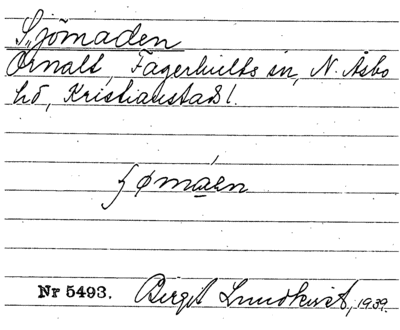 Sjömaden
Örnalt, Fagerhults sn, N. Åsbo
hd, Kristianstads l.
Nr 5493. Birgit Lundkvist, 1939.